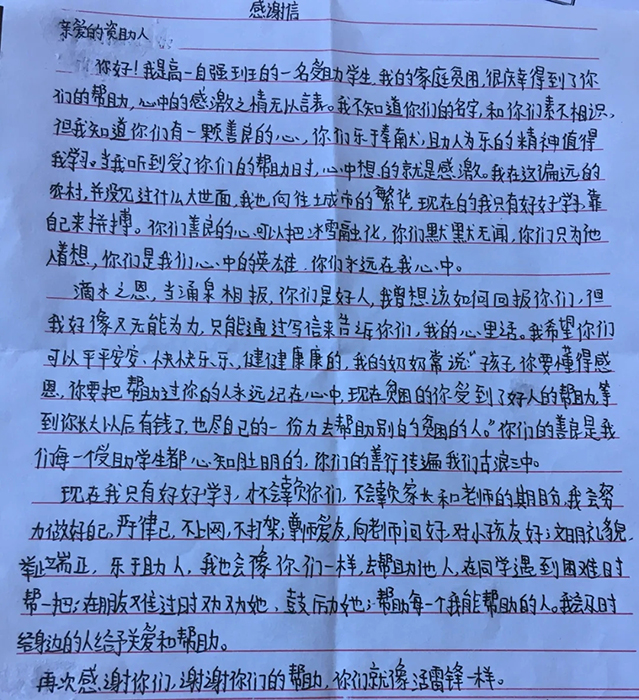 感谢信
亲爱的资助人
你好！我是高一自强班的一名受助学生，我的家庭贫困，很庆幸得到了你
们的帮助，心中的感激之情无以言表。我不知道你们的名字，和你们素不相识，
但我知道你们有一颗善良的心，你们乐于奉献，助人为乐的精神值得
我学习。当我听到受了你们的帮助时，心中想的就是感激。我在这偏远的
农村，并没见过什么大世面，我也向往城市的繁华，现在的我只有好好学习，靠
自己来拼搏。你们善良的心可以把冰雪融化，你们默默无闻，你们只为他
人着想，你们是我们心中的英雄，你们永远在我心中。
滴水之恩，当涌泉相报，你们是好人，我曾想该如何回报你们，但
我好像又无能为力，只能通过写信来告诉你们，我的心里话。我希望你们
可以平平安安、快快乐乐、健健康康的，我的奶奶常说："孩子，你要懂得感
恩，你要把帮助过你的人永远记在心中，现在贫困的你受到了好人的帮助，等
到你长大以后有钱了，也尽自己的一份力去帮助别的贫困的人。"你们的善良是我
们每一个受助学生都心知肚明的，你们的善行传遍我们古浪三中。
现在我只有好好学习，才不会辜负你们，不会辜负家长和老师的期盼，我会努
力做好自己。严于律己，不上网，不打架；尊师爱友，向老师问好，对小孩友好；文明礼貌，
举止端正，乐于助人，我也会像你们一样，去帮助他人，在同学遇到困难时
帮一把；在朋友难过时劝劝她，鼓励她；帮助每一个我能帮助的人。我会及时
给身边的人给予关爱和帮助。
再次感谢你们，谢谢你们的帮助，你们就像活雷锋一样。